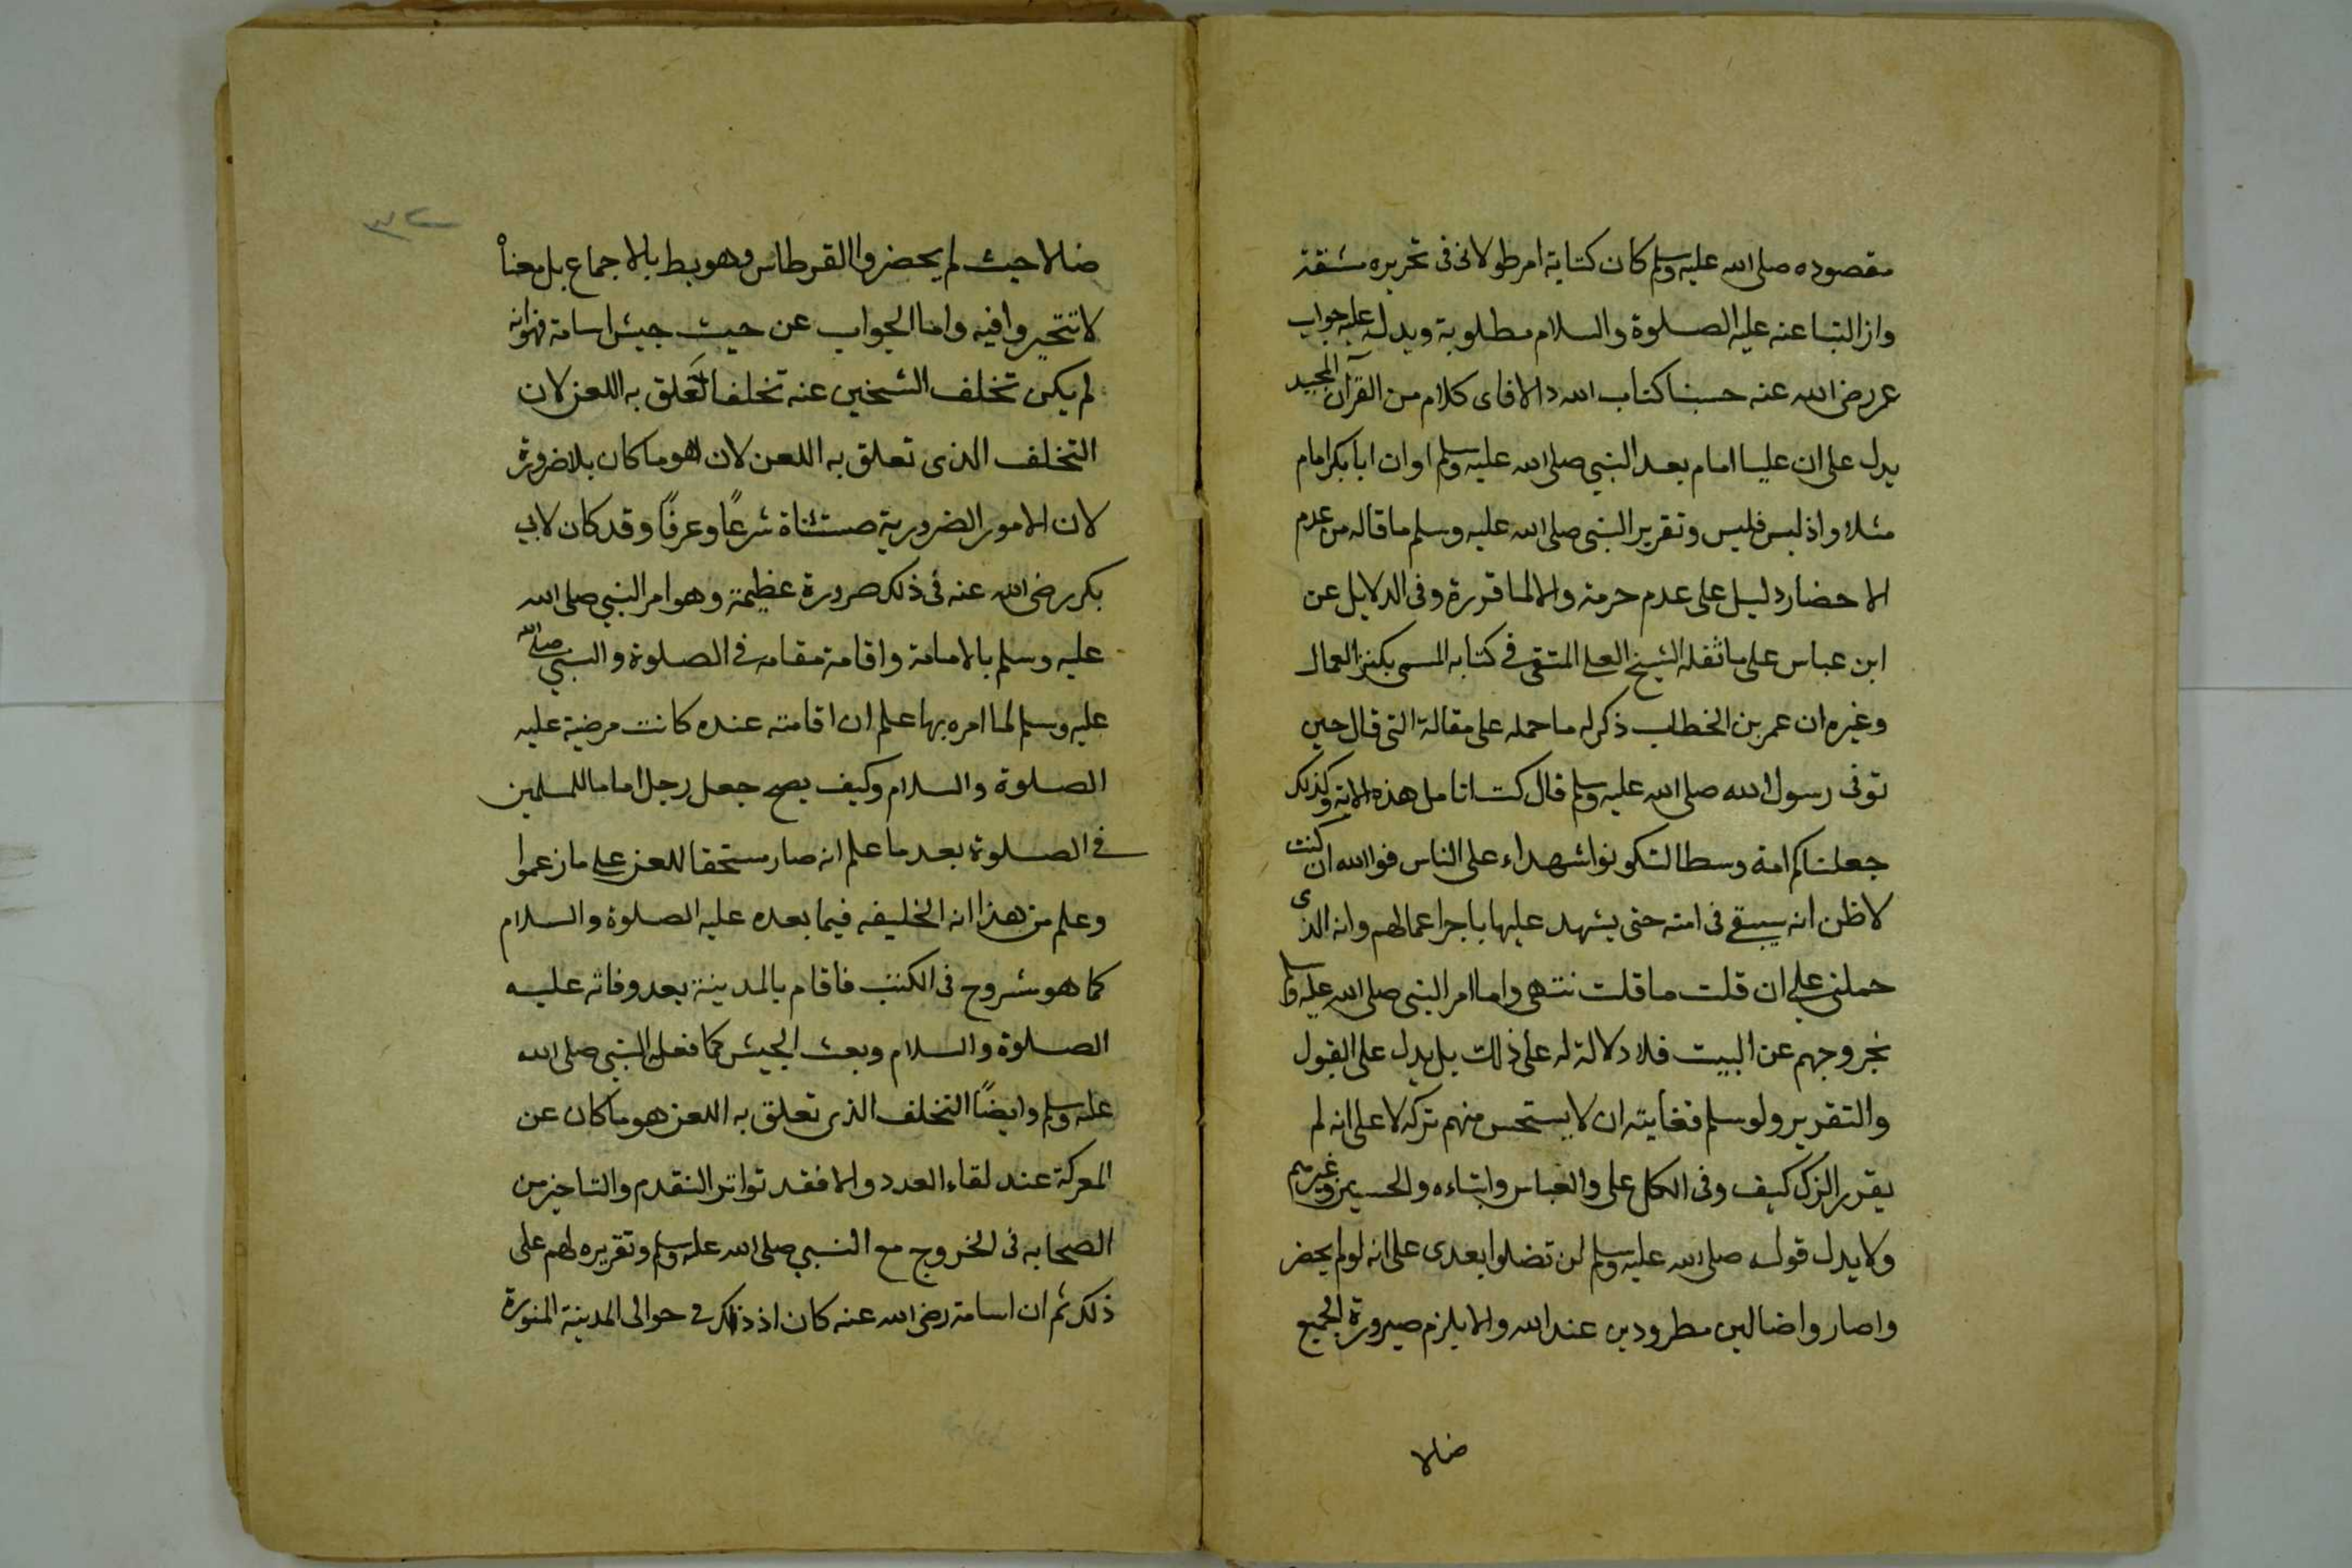 مقصوده صلى الله عليه وسلم كان كتابة امر طولانى فى تحريره مشقة
وازالتها عنه عليه الصلوة والسلام مطلوبة ويدل عليه جواب
عمر رضى الله عنه حسبنا كتاب الله والا فاى كلام من القرآن المجيد
يدل على ان عليا امام بعد النبي صلى الله عليه وسلم او ان ابا بكر امام
مثلا واذ ليس فليس وتقرير النبى صلى الله عليه وسلم ما قاله من عدم
الاحضار دليل على عدم حرمته والا لما قرره وفى الدلايل عن
ابن عباس على ما نقله الشيخ العلى المتقى فى كتابه المسمى بكنز العمال
وغيره ان عمر بن الخطاب ذكر له ما حمله على مقالة التى قال حين
توفى رسول الله صلى الله عليه وسلم قال كنت اتامل هذه الاية وكذلك
جعلناكم امة وسطا لتكونوا شهداء على الناس فوالله ان كنت
لاظن انه سيبقى فى امته حتى يشهد عليها باجر اعمالهم وانه الذى
حملنى على ان قلت ما قلت نتهى واما امر النبى صلى الله عليه وسلم
بخروجهم عن البيت فلا دلالة له على ذلك بل يدل على القبول
والتقرير ولو سلم فغايته ان لا يستحسن منهم تركه لا على انه لم
يقرر الترك كيف وفى الكل على والعباس وابناءه والحسين وغيرهم
ولا يدل قوله صلى الله عليه وسلم لن تضلوا بعدى على انه لو لم يحضر
واصاروا ضالين مطرودين عند الله والا يلزم صيرورة الجميع
ضالا
٣٢
ضالا حيث لم يحضروا القرطاس وهو بط بالاجماع بل معناه
لا تتحيروا فيه واما الجواب عن حيث جيش اسامة فهو انه
لم يكن تخلف الشيخين عنه تخلفا تعلق به اللعن لان
التخلف الذى تعلق به اللعن لان هو ما كان بلا ضرورة
لان الامور الضرورية مستثناة شرعًا وعرفًا وقد كان لابى
بكر رضى الله عنه فى ذلك ضرورة عظيمة وهو امر النبي صلى الله
عليه وسلم بالامامة واقامة مقامه فى الصلوة والنبي صلى الله
عليه وسلم لما امره بها علم ان اقامته عنده كانت مرضية عليه
الصلوة والسلام وكيف يصح جعل رجل اماما للمسلمين
فى الصلوة بعد ما علم انه صار مستحقا للعن على ما زعموا
وعلم من هذا انه الخليفه فيما بعده عليه الصلوة والسلام
كما هو مشروح فى الكتب فاقام بالمدينة بعد وفاته عليه
الصلوة والسلام وبعث الجيش كما فعل النبي صلى الله
عليه وسلم وايضًا التخلف الذى تعلق به اللعن هو ما كان عن
المعركة عند لقاء العدو والا فقد تواتر التقدم والتاخير من
الصحابه فى الخروج مع النبي صلى الله عليه وسلم وتقريره لهم على
ذلك ثم ان اسامة رضى الله عنه كان اذ ذلك فى حوالى المدينة المنورة